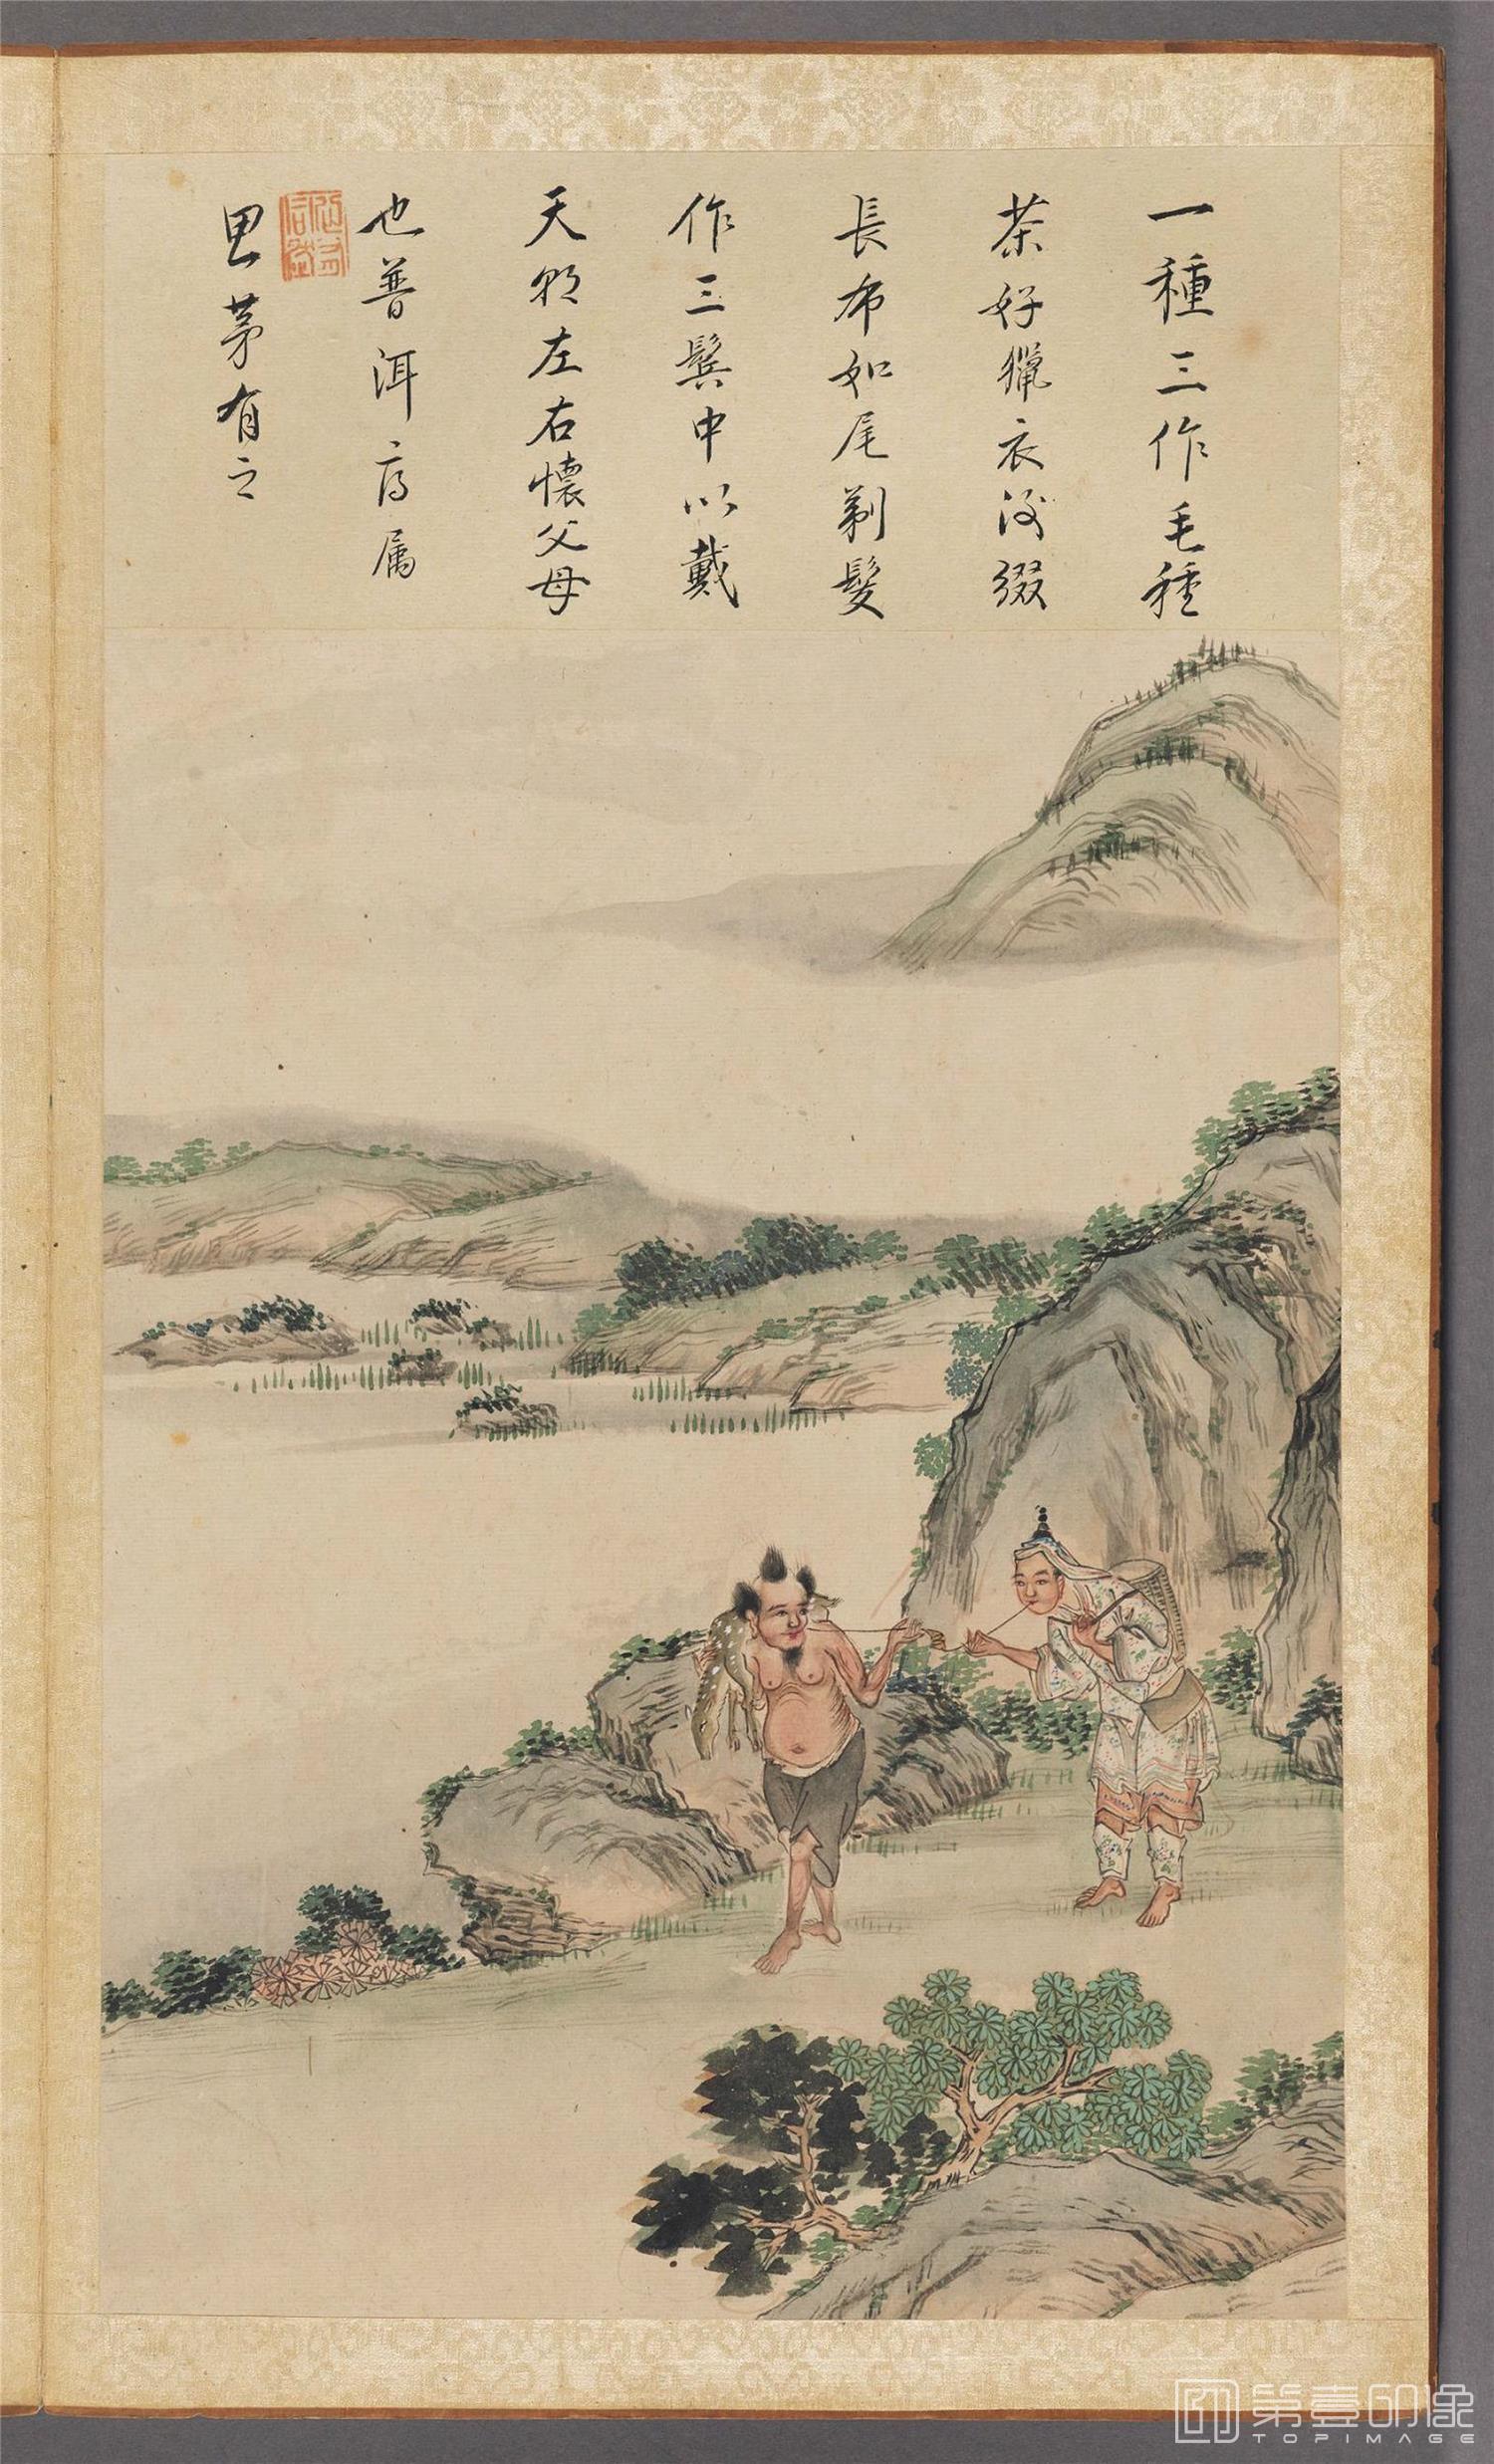 一種三作毛種
茶好獵衣後綴
長布如尾剃髮
作三髻中以戴
天朝左右懷父母
也普洱府属
思茅有之
第壹印像
TOPIMAGE